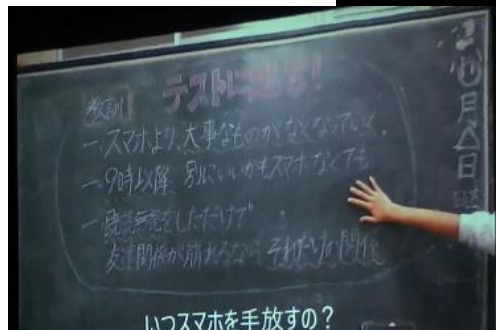 テストに出る!
教訓
一、スマホより、大事なものがなくなっていく。
一、9時以降 別にいいかもスマホなくても
一、既読無視をしただけで
友達関係が崩れるなら それだけの関係
月△日
いつスマホを手放すの?